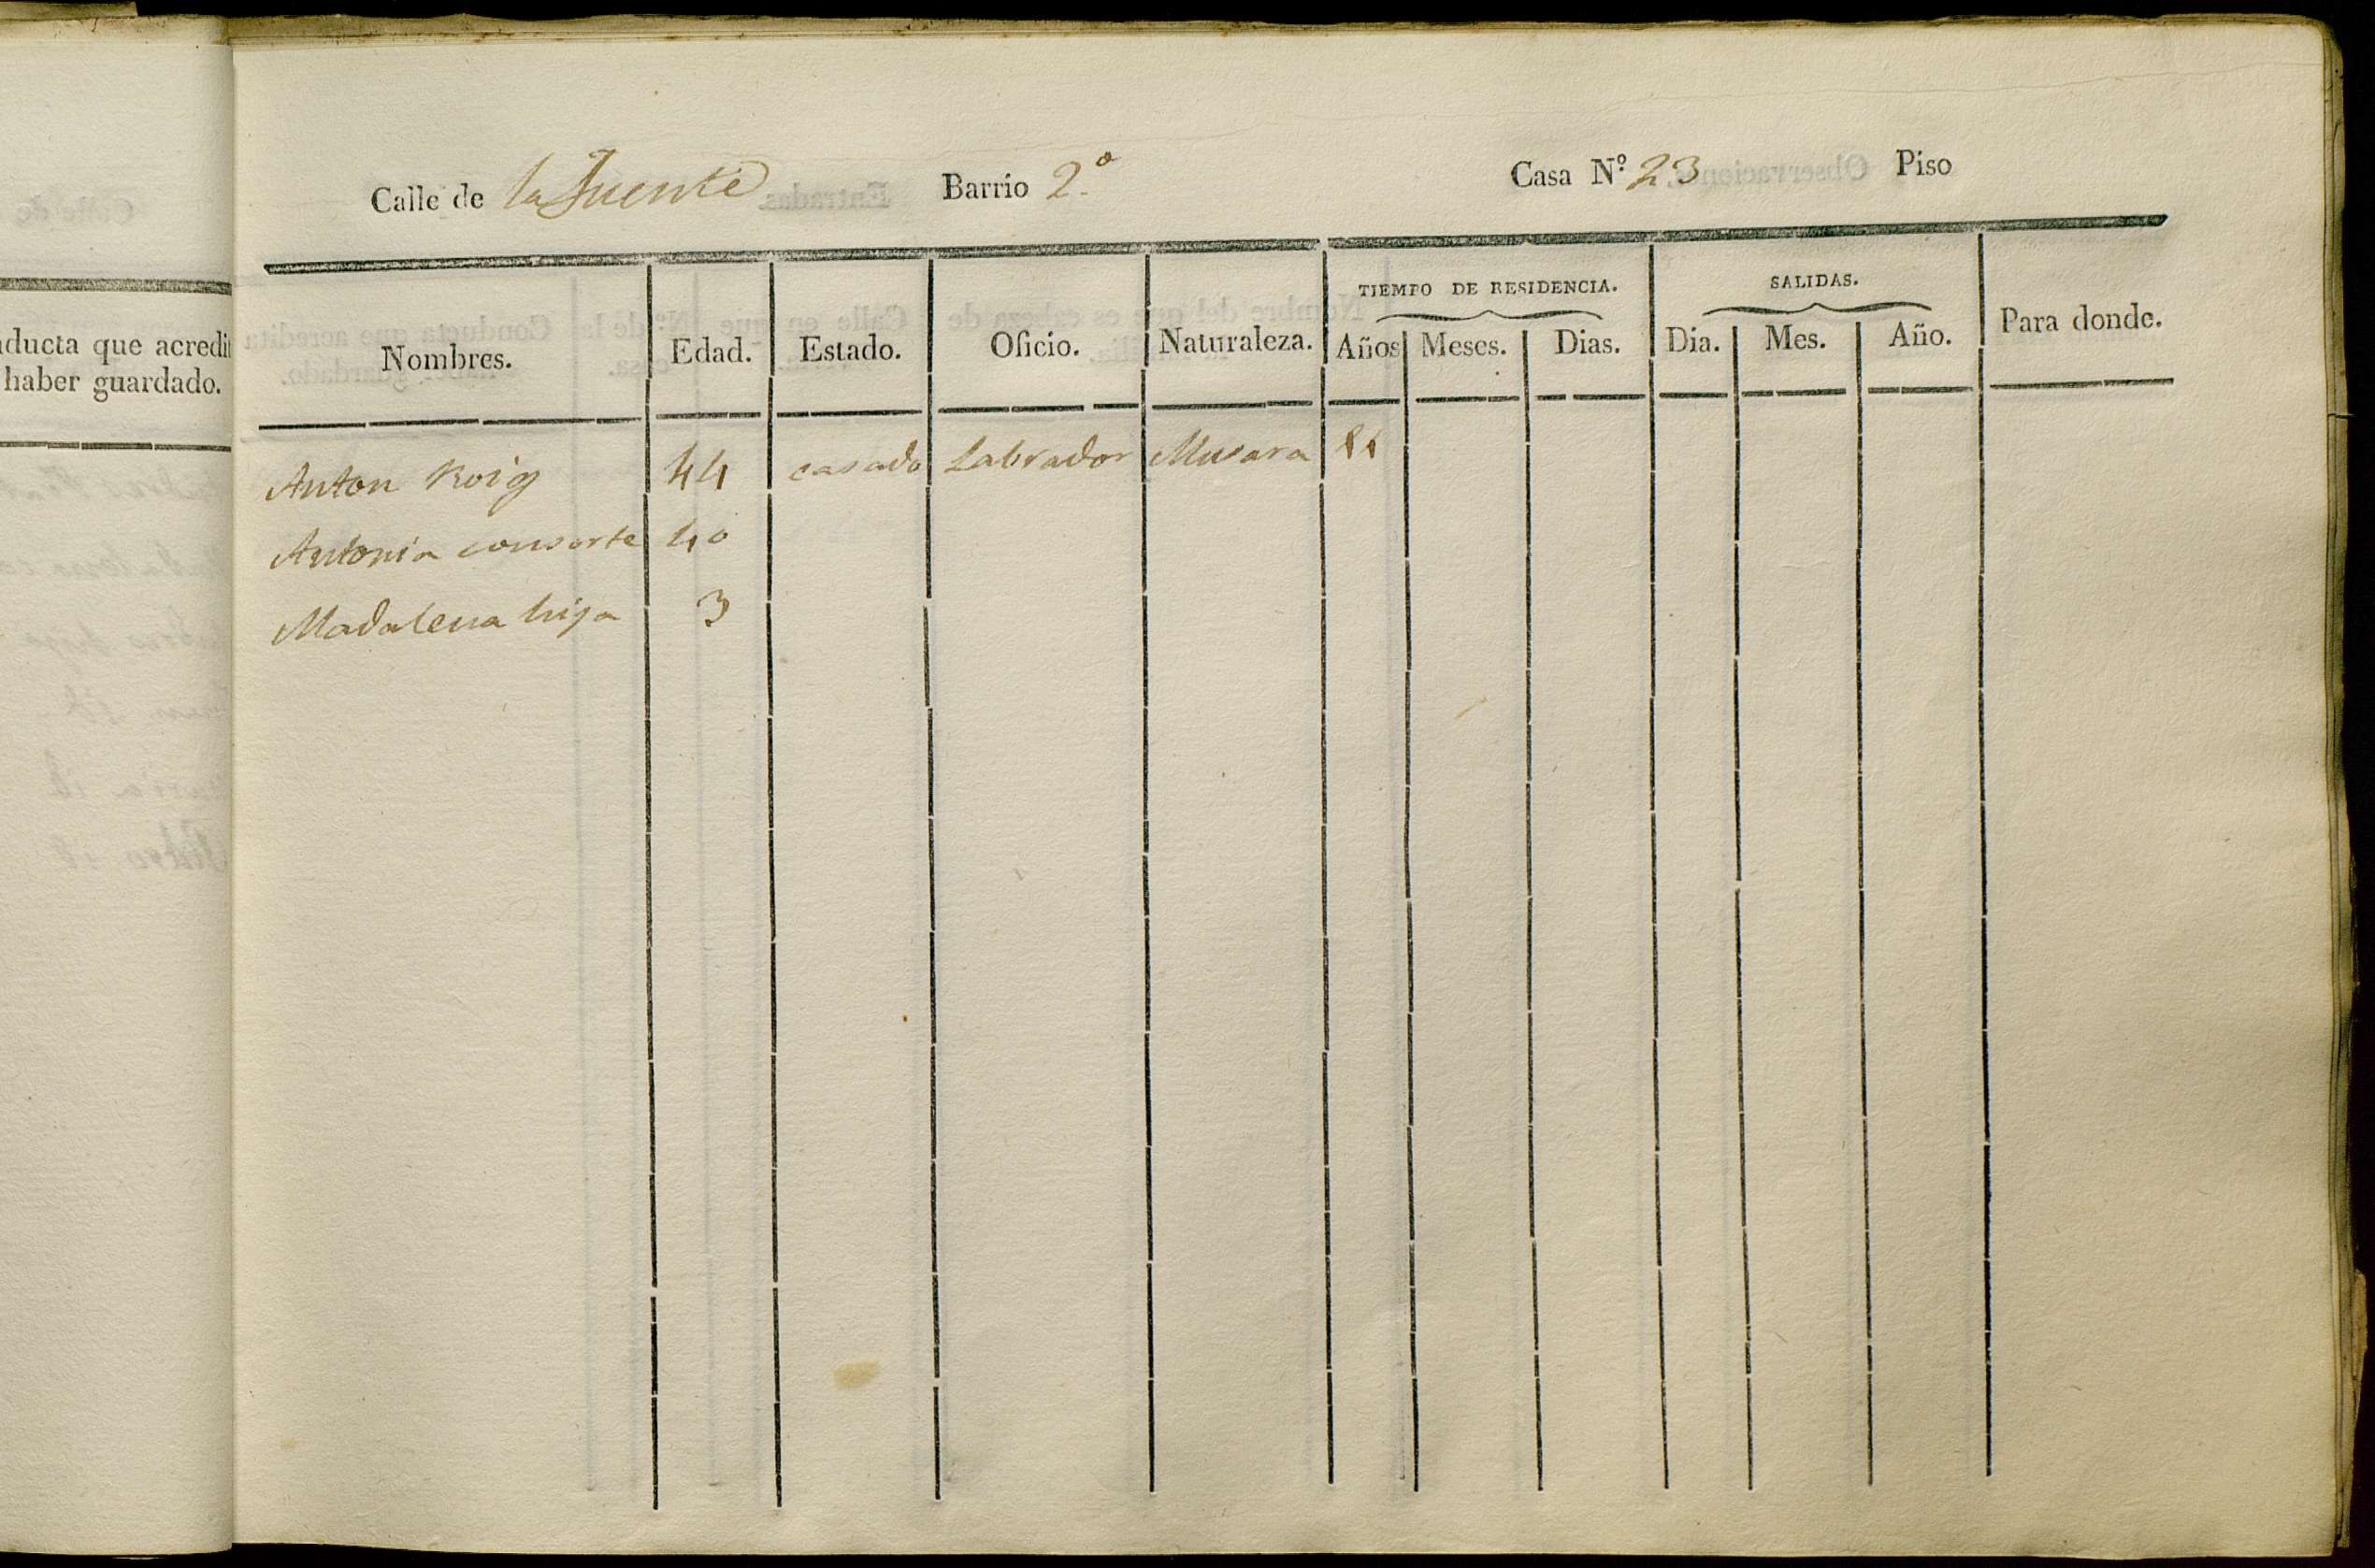 ducta que acredi
haber guardado.
Calle de la Fuente Barrio 2.º Casa N.º 23 Piso
Nombres. Edad. Estado. Oficio. Naturaleza. TIEMPO DE RESIDENCIA. Años Meses. Dias. SALIDAS. Dia. Mes. Año. Para donde.
Anton Roig 44 casado Labrador Musara
Antonia consorte 40
Madalena hija 3